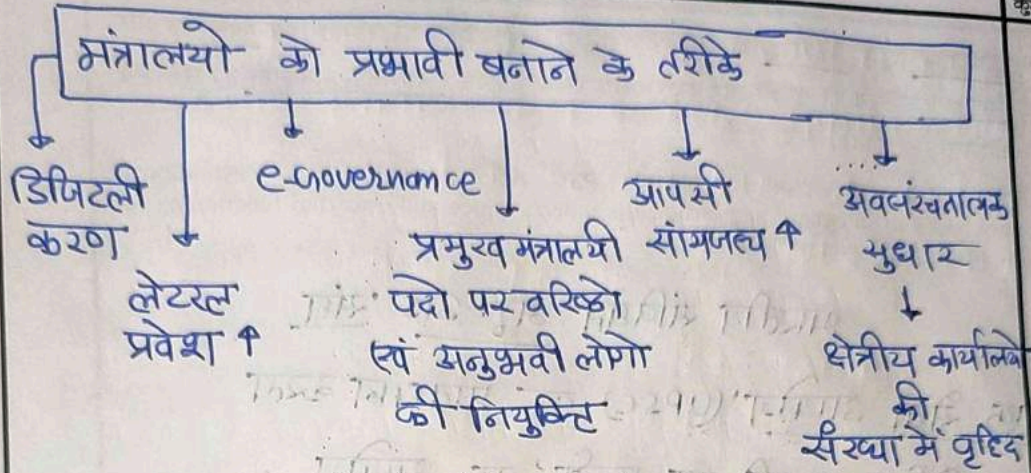 मंत्रालयो को प्रभावी बनाने के तरीके
डिजिटली
करण
लेटरल
प्रवेश ↑
e-Governance
प्रमुख मंत्रालयी
पदो पर वरिष्ठो
एवं अनुभवी लोगो
की नियुक्ति
आपसी
सांमजस्य ↑
अवसंरचनात्मक
सुधार
↓
क्षेत्रीय कार्यालयो
की
संख्या में वृद्दि